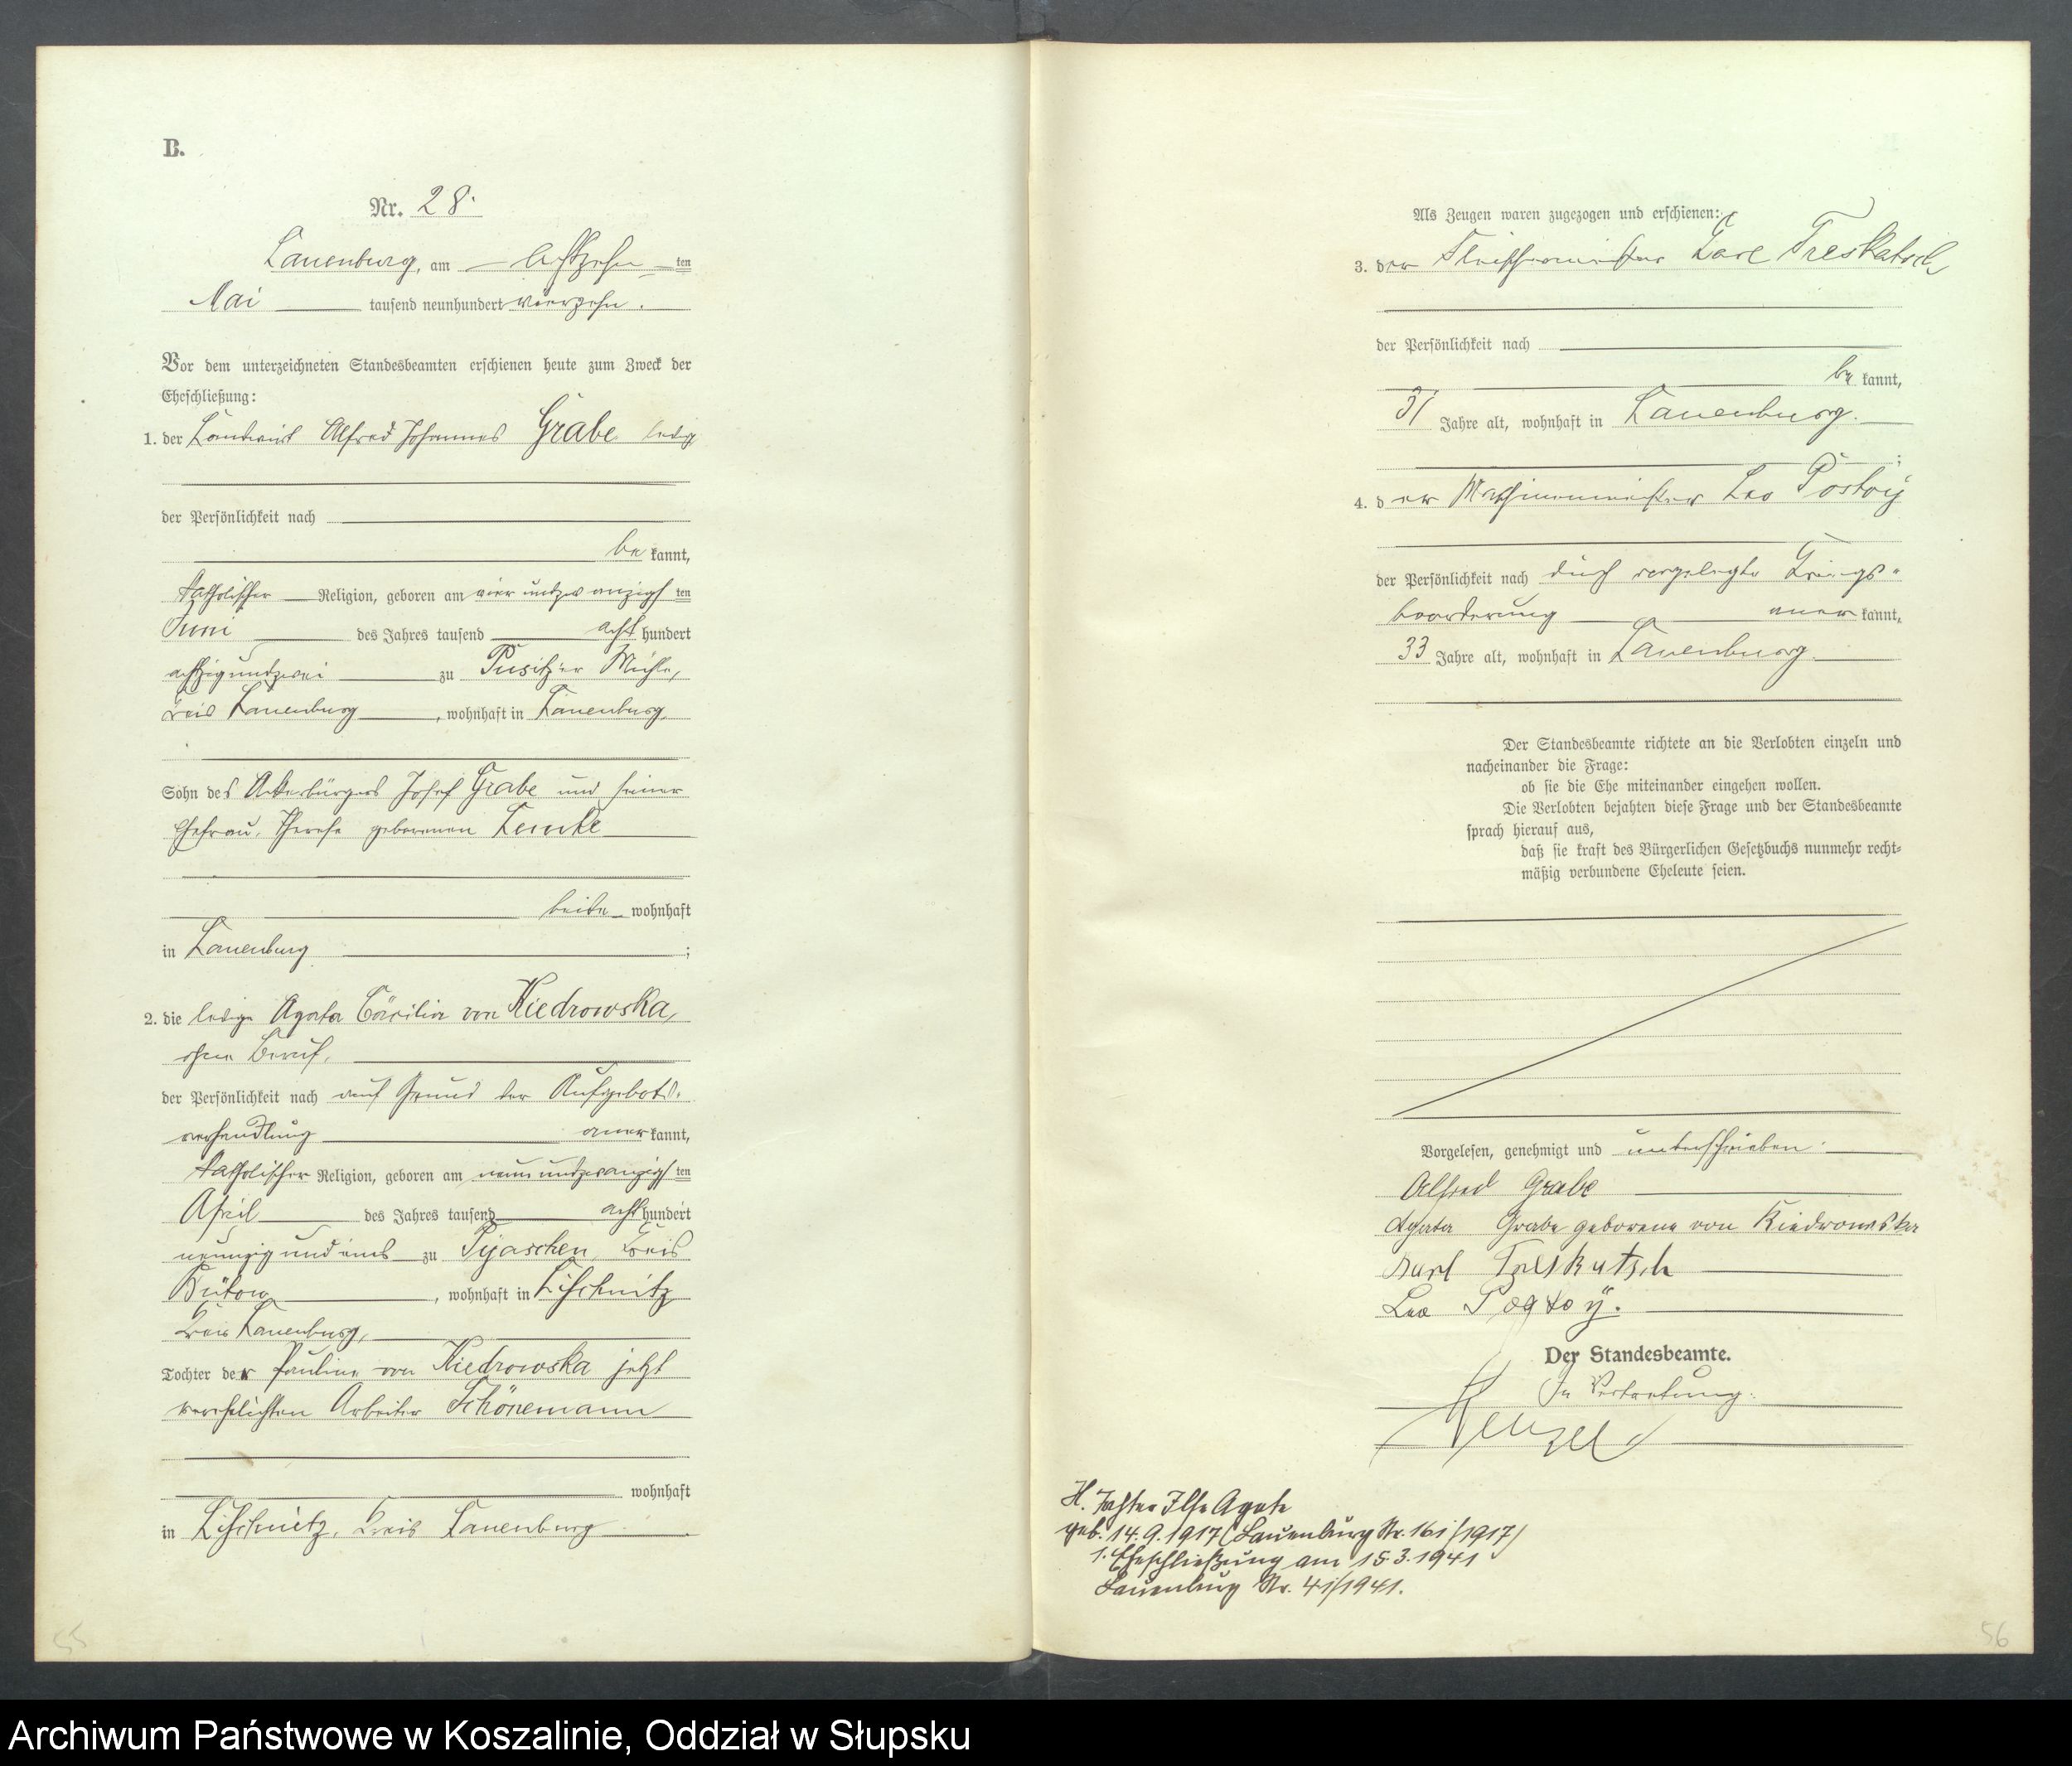 B.
Nr. 28.
Lauenburg, am achtzehnten
Mai tausend neunhundert vierzehn.
Vor dem unterzeichneten Standesbeamten erschienen heute zum Zweck der
Eheschließung:
1. der Landwirt Alfred Johannes Grabe ledig
der Persönlichkeit nach
be kannt,
katholischer Religion, geboren am vier und zwanzigsten
Juni des Jahres tausend acht hundert
achtzig und zwei zu Pusitzer Mühle,
Kreis Lauenburg, wohnhaft in Lauenburg,
Sohn des Ackerbürgers Josef Grabe und seiner
Ehefrau, Therese geborenen
beide wohnhaft
in Lauenburg;
2. die ledige Agata Cäcilia von Kiedrowska,
ohne Beruf,
der Persönlichkeit nach auf Grund der Aufgebots-
verhandlung aner kannt,
katholischer Religion, geboren am neun und zwanzigsten
April des Jahres tausend acht hundert
neunzig und eins zu Pyaschen, Kreis
Bütow, wohnhaft in Lischnitz
Kreis Lauenburg,
Tochter der Pauline von Kiedrowska jetzt
verehelichten Arbeiter Schönemann
wohnhaft
in Lischnitz, Kreis Lauenburg.
55
Als Zeugen waren zugezogen und erschienen:
3. der Fleischermeister Karl Treskatsch
der Persönlichkeit nach
be kannt,
Jahre alt, wohnhaft in Lauenburg.
;
4. der Maschinenmeister Leo
der Persönlichkeit nach durch vorgelegte Kriegs-
beorderung aner kannt,
33 Jahre alt, wohnhaft in Lauenburg.
Der Standesbeamte richtete an die Verlobten einzeln und
nacheinander die Frage:
ob sie die Ehe miteinander eingehen wollen.
Die Verlobten bejahten diese Frage und der Standesbeamte
sprach hierauf aus,
daß sie kraft des Bürgerlichen Gesetzbuchs nunmehr recht-
mäßig verbundene Eheleute seien.
Vorgelesen, genehmigt und unterschrieben.
Alfred Grabe
Agata Grabe geborene von Kiedrowska
Karl Treskatsch
Leo
Der Standesbeamte.
In Vertretung.
Wenzel
H. Tochter Ilse Agate
geb. 14.9.1917 (Lauenburg Nr. 161/1917)
1. Eheschließung am 15.3.1941
Lauenburg Nr. 41/1941.
56
Archiwum Państwowe w Koszalinie, Oddział w Słupsku